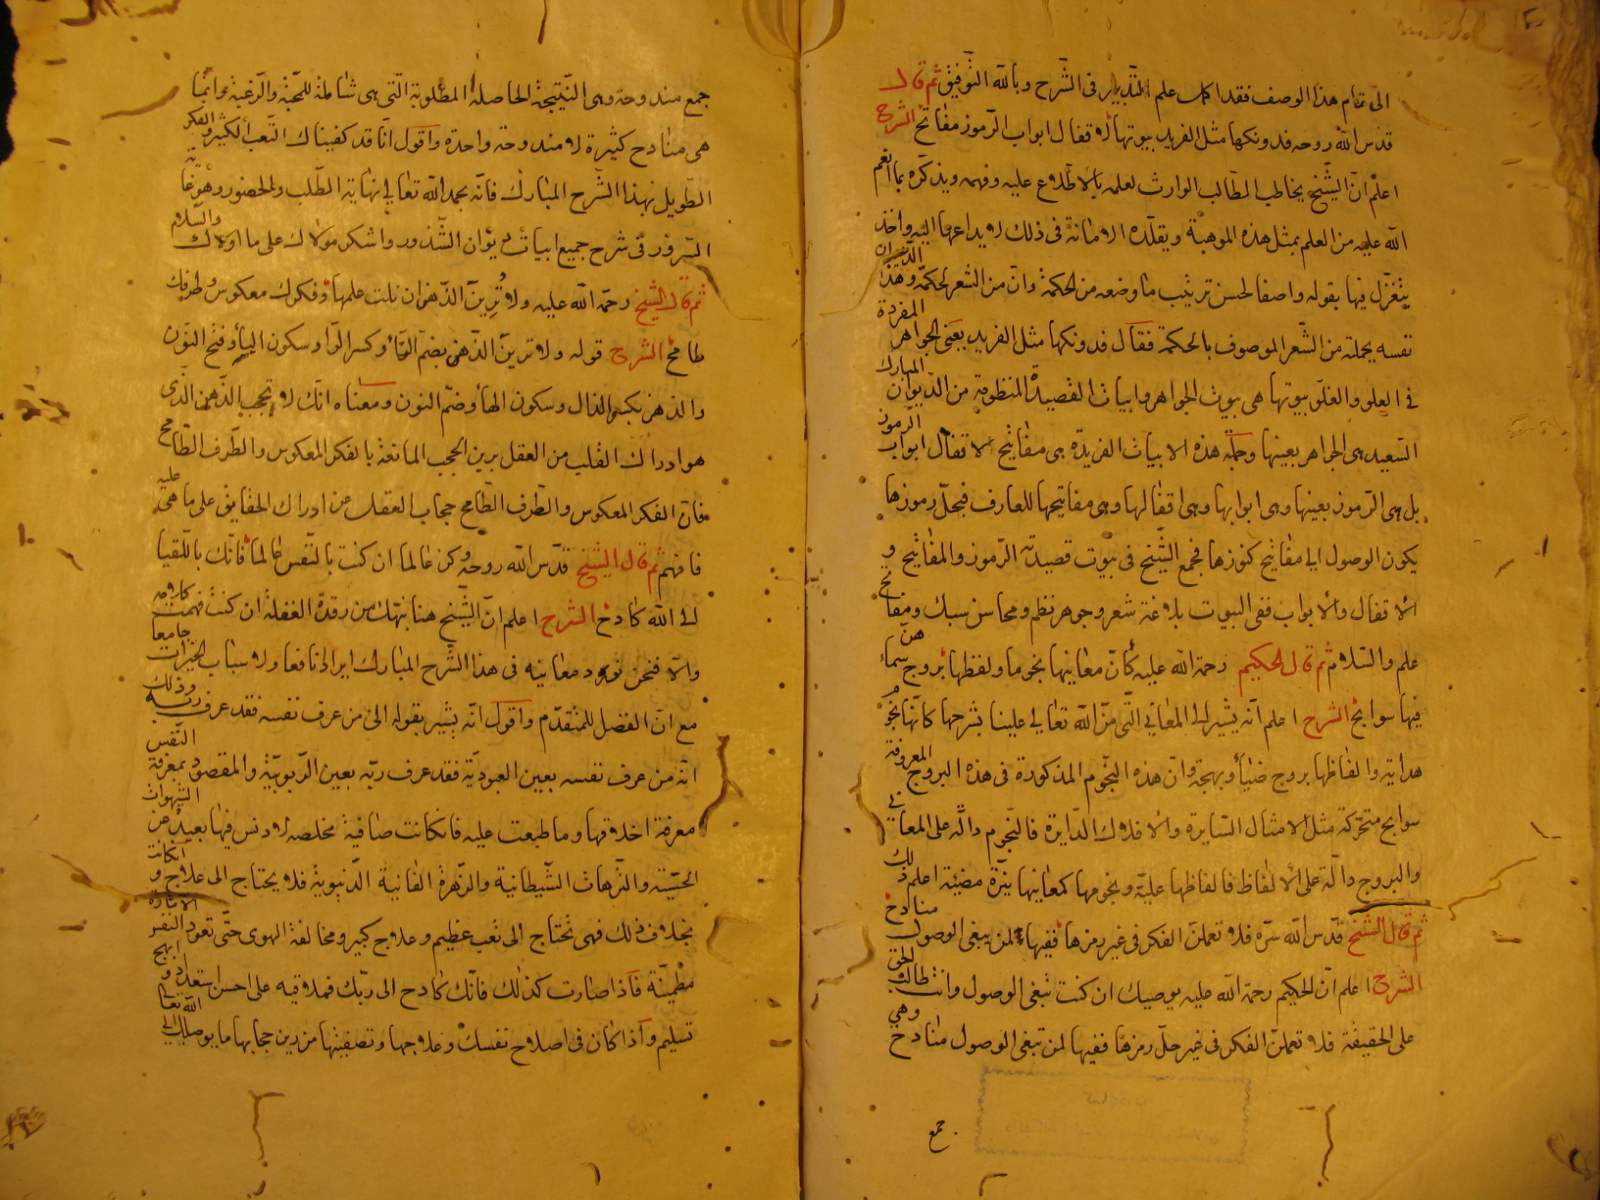 الى تمام هذا الوصف فقد اكمل علم التدبير فى الشرح وبالله التوفيق ثم قال
قدس الله روحه فدونكها مثل الفريد بيوتها لاقفال ابواب الرموز مفاتح الشرح
اعلم ان الشيخ يخاطب الطالب الوارث لعلمه بالاطلاع عليه وفهمه ويذكره بما انعم
الله عليه من العلم بمثل هذه الموهبة ويقلده الامانة فى ذلك لايداعها اليه واخذ
يتغزل فيها بقوله واصفا لحسن ترتيب ما وضعه من الحكمة وان من الشعر لحكمة وهذا الديوان
نفسه بجملته من الشعر الموصوف بالحكمة فقال فدونكها مثل الفريد يعنى الجواهر المفردة
فى العلو والغلو بيوتها هى بيوت الجواهر وابيات القصيدة المنظومة من الديوان المبارك
السعيد هى الجواهر بعينها وجملة هذه الابيات الفريدة هى مفاتيح لاقفال ابواب الرموز
بل هى الرموز بعينها وهى ابوابها وهى اقفالها وهى مفاتيحها للعارف فبحل رموزها
يكون الوصول الى مفاتيح كنوزها فجمع الشيخ فى بيوت قصيدته الرموز والمفاتيح و
الاقفال والابواب ففى البيوت بلاغة شعر وجوهر نظم ومحاسن سبك ومفاتح
علم والسلام ثم قال الحكيم رحمة الله عليه كأن معانيها نجوما ولفظها بروج سماء هن
فيها سوابح الشرح اعلم انه يشير الى المعانى التى من الله تعالى علينا بشرحها كانها نجوم
هداية والفاظها بروج ضياء وبهجة وان هذه النجوم المذكورة فى هذه البروج المعروفة
سوابح متحركة مثل الامثال السايرة والافلاك الدايرة فالنجوم دالة على المعانى
والبروج دالة على الالفاظ فالفاظها علية ونجومها كمعانيها نيرة مضيئة اعلم ذلك
ثم قال الشيخ قدس الله سره فلا تعملن الفكر فى غير رمزها ففيها لمن يبغى الوصول منادح
الشرح اعلم ان الحكيم رحمة الله عليه يوصيك ان كنت تبغى الوصول وانت طالب الحق
على الحقيقة فلا تعملن الفكر فى غير حل رمزها ففيها لمن تبغى الوصول منادح وهى
جمع
جمع مندوحة وهى النتيجة الحاصلة المطلوبة التى هى شاملة للمحبة والرغبة وانما
هى منادح كثيرة لا مندوحة واحدة واقول انا قد كفيناك التعب الكثير والفكر
الطويل بهذا الشرح المبارك فانه بحمد الله تعالى نهاية الطلب والحضور وهو غاية
السرور فى شرح جميع ابيات ديوان الشذور واشكر مولاك على ما اولاك والسلام
ثم قال الشيخ رحمة الله عليه ولا تُرِينَّ الذهن ان نلت علمها وفكرك معكوس وطرفك
طامح الشرح قوله ولا ترين الذهن بضم التاء وكسر الراء وسكون الياء وفتح النون
والذهن بكسر الذال وسكون الهاء وضم النون ومعناه انك لا تحجب الذهن الذى
هو ادراك القلب من العقل برين الحجب المانعة بالفكر المعكوس والطرف الطامح
فان الفكر المعكوس والطرف الطامح حجاب العقل عن ادراك الحقايق على ما هى عليه
فافهم ثم قال الشيخ قدس الله روحه وكن عالما ان كنت بالنفس عالما فانك باللقيا
الى الله كادح الشرح اعلم ان الشيخ هنا ينبهك من رقدة الغفلة ان كنت فهمت كلامه
والا فنحن نورد معانيه فى هذا الشرح المبارك ايرادا نافعا ولاسباب الخيرات جامعا
مع ان الفضل للمتقدم واقول انه يشير بقوله الى من عرف نفسه فقد عرف ربه وذلك
انه من عرف نفسه بعين العبودية فقد عرف ربه بعين الربوبية والمقصود بمعرفة النفس
معرفة اخلاقها وما طبعت عليه فان كانت صافية مخلصة لا دنس فيها بعيدة عن الشهوات
الحسية والنزهات الشيطانية والزهرة الفانية الدنيوية فلا يحتاج الى علاج و انكانت
بخلاف ذلك فهى تحتاج الى تعب عظيم وعلاج كبير ومخالفة الهوى حتى تعود النفس الامارة
مطمينة فاذا صارت كذلك فانك كادح الى ربك فملاقيه على احسن استعداد و ابهج
تسليم واذا كان فى اصلاح نفسك وعلاجها وتصفيتها من رين حجابها ما يوصلك الى الله تعالى